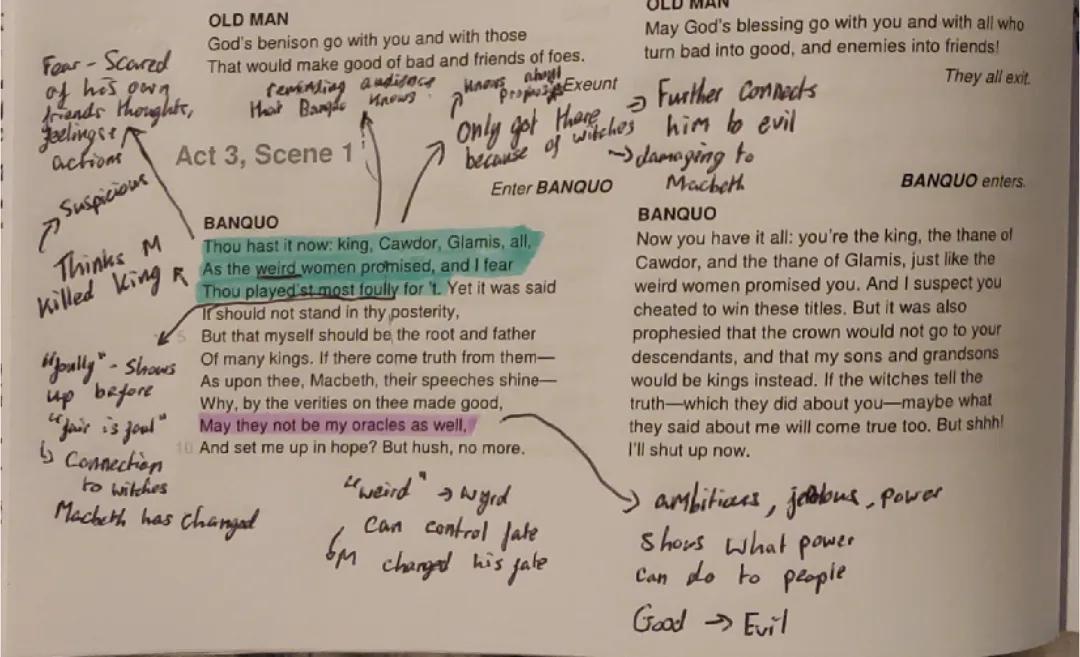 OLD MAN
God's benison go with you and with those
That would make good of bad and friends of foes.
Exeunt
OLD MAN
May God's blessing go with you and with all who
turn bad into good, and enemies into friends!
They all exit.
Fear - Scared
of his own
friends thoughts,
feelings +
actions
reminding audience
that Banquo knows.
knows about
Only got there
because of witches
→ Further connects
him to evil
→ damaging to
Macbeth
Act 3, Scene 1
Enter BANQUO
BANQUO
Thou hast it now: king, Cawdor, Glamis, all,
As the weird women promised, and I fear
Thou played'st most foully for 't. Yet it was said
It should not stand in thy posterity,
5 But that myself should be the root and father
Of many kings. If there come truth from them—
As upon thee, Macbeth, their speeches shine—
Why, by the verities on thee made good,
May they not be my oracles as well,
10 And set me up in hope? But hush, no more.
BANQUO enters.
BANQUO
Now you have it all: you're the king, the thane of
Cawdor, and the thane of Glamis, just like the
weird women promised you. And I suspect you
cheated to win these titles. But it was also
prophesied that the crown would not go to your
descendants, and that my sons and grandsons
would be kings instead. If the witches tell the
truth—which they did about you—maybe what
they said about me will come true too. But shhh!
I'll shut up now.
Suspicious
Thinks M
killed King
"foully" - Shows
up before
"fair is foul"
↳ Connection
to witches
Macbeth has changed
"weird" → wyrd
can control fate
↳ M changed his fate
→ ambitious, jealous, power
Shows what power
can do to people
Good → Evil